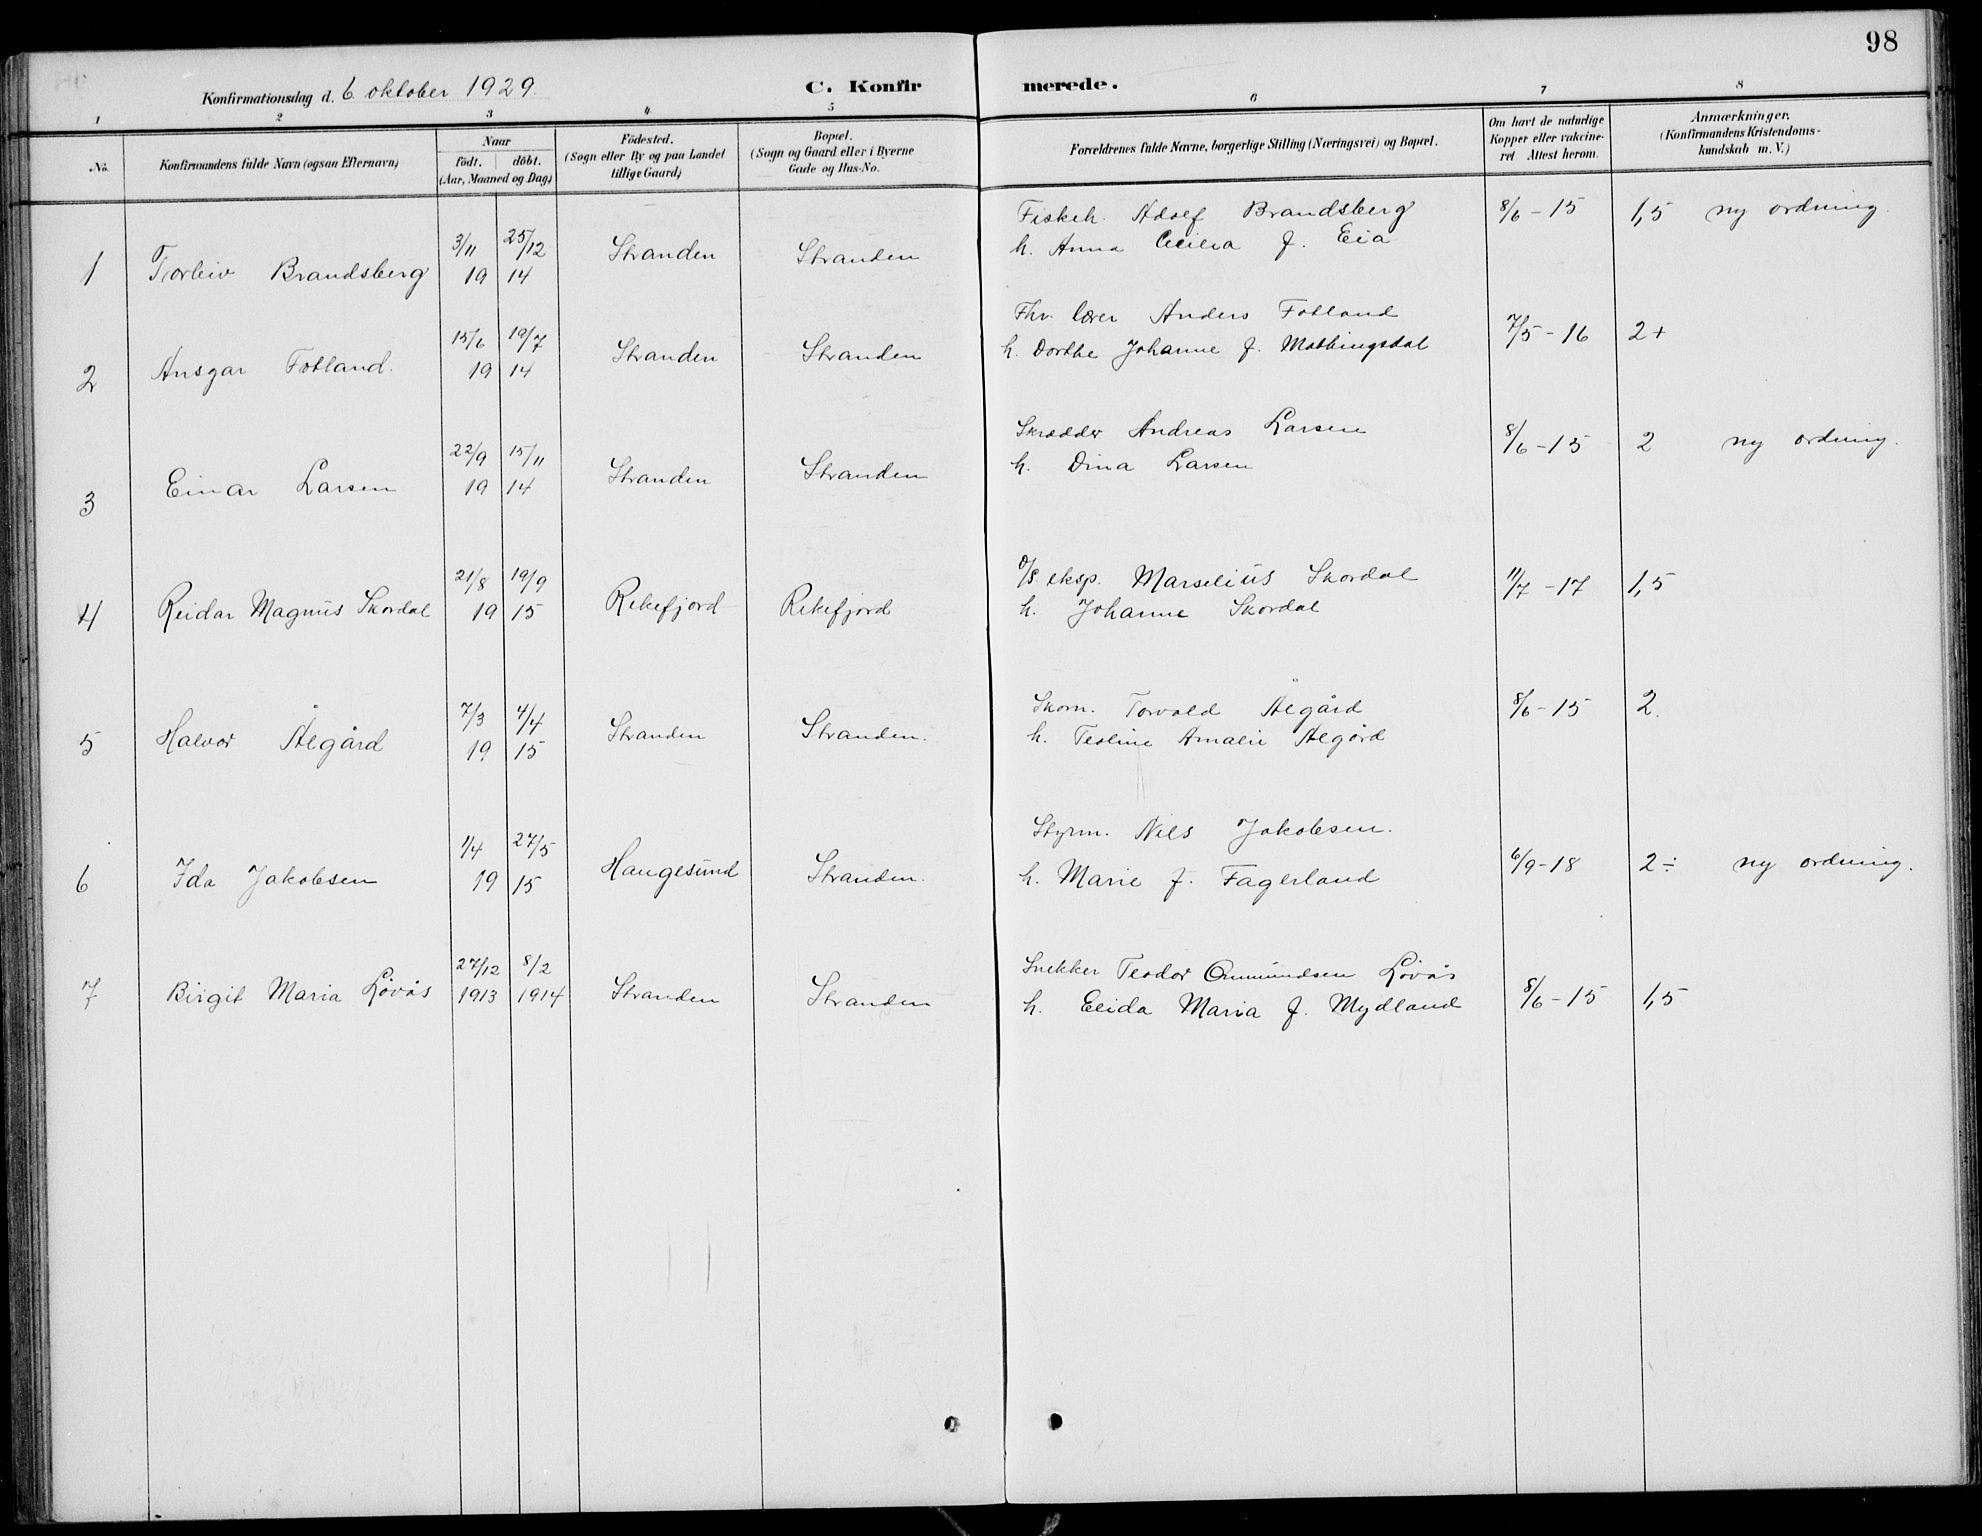 98
Konfirmationsdag d. 6 oktober 1929.
C. Konfirmerede.
1 2 3 4 5 6 7 8
No.
Konfirmandens fulde Navn (ogsaa Efternavn)
Naar
födt. döbt.
(Aar, Maaned og Dag)
Födested.
(Sogn eller By og paa Landet
tillige Gaard)
Bopæl.
(Sogn og Gaard eller i Byerne
Gade og Hus-No.
Forældrenes fulde Navne, borgerlige Stilling (Næringsvei) og Bopæl.
Om havt de naturlige
Kopper eller vakcine-
ret Attest herom.
Anmærkninger.
(Konfirmandens Kristendoms-
kundskab m. V.)
1 Torleiv Brandsberg 3/11 19 25/12 14 Stranden Stranden
Fiskeh. Adolf Brandsberg 8/6 - 15 1,5 ny ordning.
h. Anna Cecilia f. Eia
2 Ansgar Fotland. 15/6 19 19/7 14 Stranden Stranden
Fhv. lærer Anders Fotland 7/5 - 16 2+
h. Dorthe Johanne f. Mathingsdal
3 Einar Larsen 22/9 19 15/11 14 Stranden Stranden
Skrædder Andreas Larsen 8/6 - 15 2 ny ordning.
h. Dina Larsen
4 Reidar Magnus Skordal 21/8 19 19/9 15 Rekefjord Rekefjord
D/S eksp. Marselius Skordal 11/7 - 17 1,5
h. Johanne Skordal
5 Halvor Ålgård 7/3 19 4/4 15 Stranden Stranden.
Skom. Torvald Ålgård 8/6 - 15 2.
h. Teoline Amalie Ålgård
6 Ida Jakobsen 1/4 19 27/5 15 Haugesund Stranden.
Styrm. Nils Jakobsen.
h. Marie f. Fagerland 6/9 - 18 2÷ ny ordning.
7 Birgit Maria Lövås 27/12 1913 8/2 1914 Stranden Stranden
Snekker Teodor Ommundsen Lövås
h. Elida Maria f. Mydland 8/6 - 15 1,5